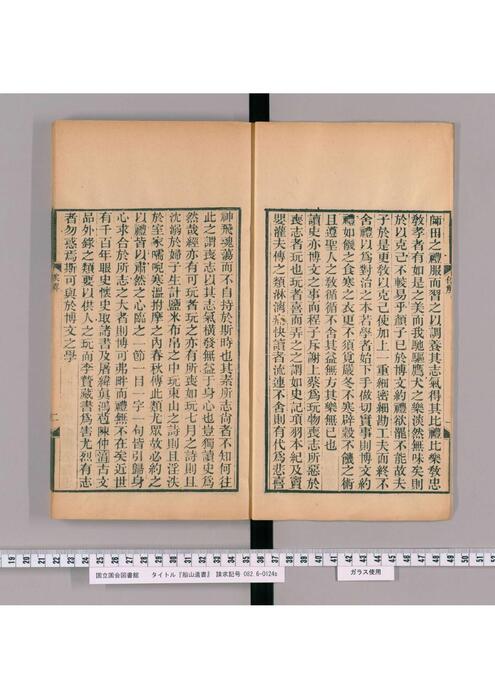 師田之禮服而習之以調養其志氣得其比禮比樂敎忠
敎孝者有如是之美而我馳驅鷹犬之樂淡然無味矣則
於以克己不較易乎顏子已於博文約禮欲罷不能故夫
子於是更敎以克己使加上一重細密細勘工夫而終不
舍禮以爲對治之本若學者始下手做切實事則博文約
禮如饑之食寒之衣更不須覓嚴冬不寒辟穀不饑之術
且遵聖人之敎循循不舍其益無方其樂無已也
讀史亦博文之事而程子斥謝上蔡爲玩物喪志所惡於
喪志者玩也玩者喜而弄之之謂如史記項羽本紀及竇
嬰灌夫傳之類淋漓痛快讀者流連不舍則有代爲悲喜
神飛魂蕩而不自持於斯時也其素所志尙者不知何往
此之謂喪志以其志氣橫發無益于身心也豈獨讀史爲
然哉經亦有可玩者玩之亦有所喪如玩七月之詩則且
沈溺於婦子生計鹽米布帛之中玩東山之詩則且淫泆
於室家嚅唲寒溫拊摩之內春秋傳此類尤衆故必約之
以禮皆以肅然之心臨之一節一目一字一句皆引歸身
心求合於所志之大者則博可弗畔而禮無不在矣近世
有千百年眼史懷史取諸書及屠緯眞鴻苞陳仲淳古文
品外錄之類要以供人之玩而李贄藏書爲害尤烈有志
者勿惑焉斯可與於博文之學
二
国立国会図書館 タイトル『船山遺書』 請求記号 082.6-O124s
ガラス使用